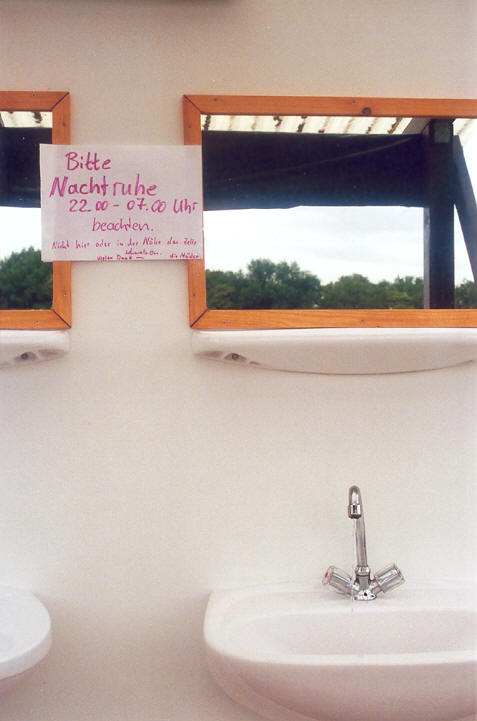 Bitte
Nachtruhe
22.00 - 07.00 Uhr
beachten.
Nicht hier oder in der Nähe der Zelte
Vielen Dank — die Müden